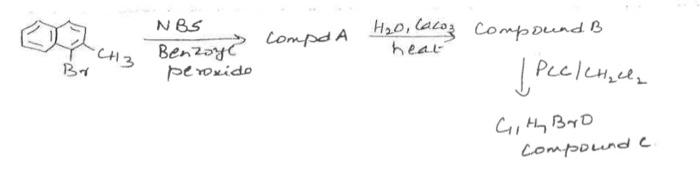 NBS
Benzoyl
peroxide
Compd A
H₂O, CaCO₃
heat
Compound B
CH₃
Br
PCC/CH₂Cl₂
C₁₁H₇BrO
Compound C